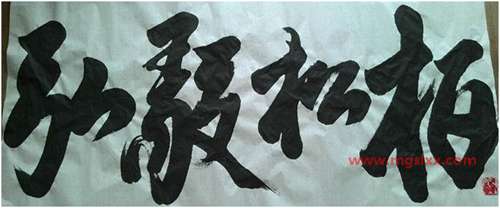 弘毅松柏
www.mgxlxx.com